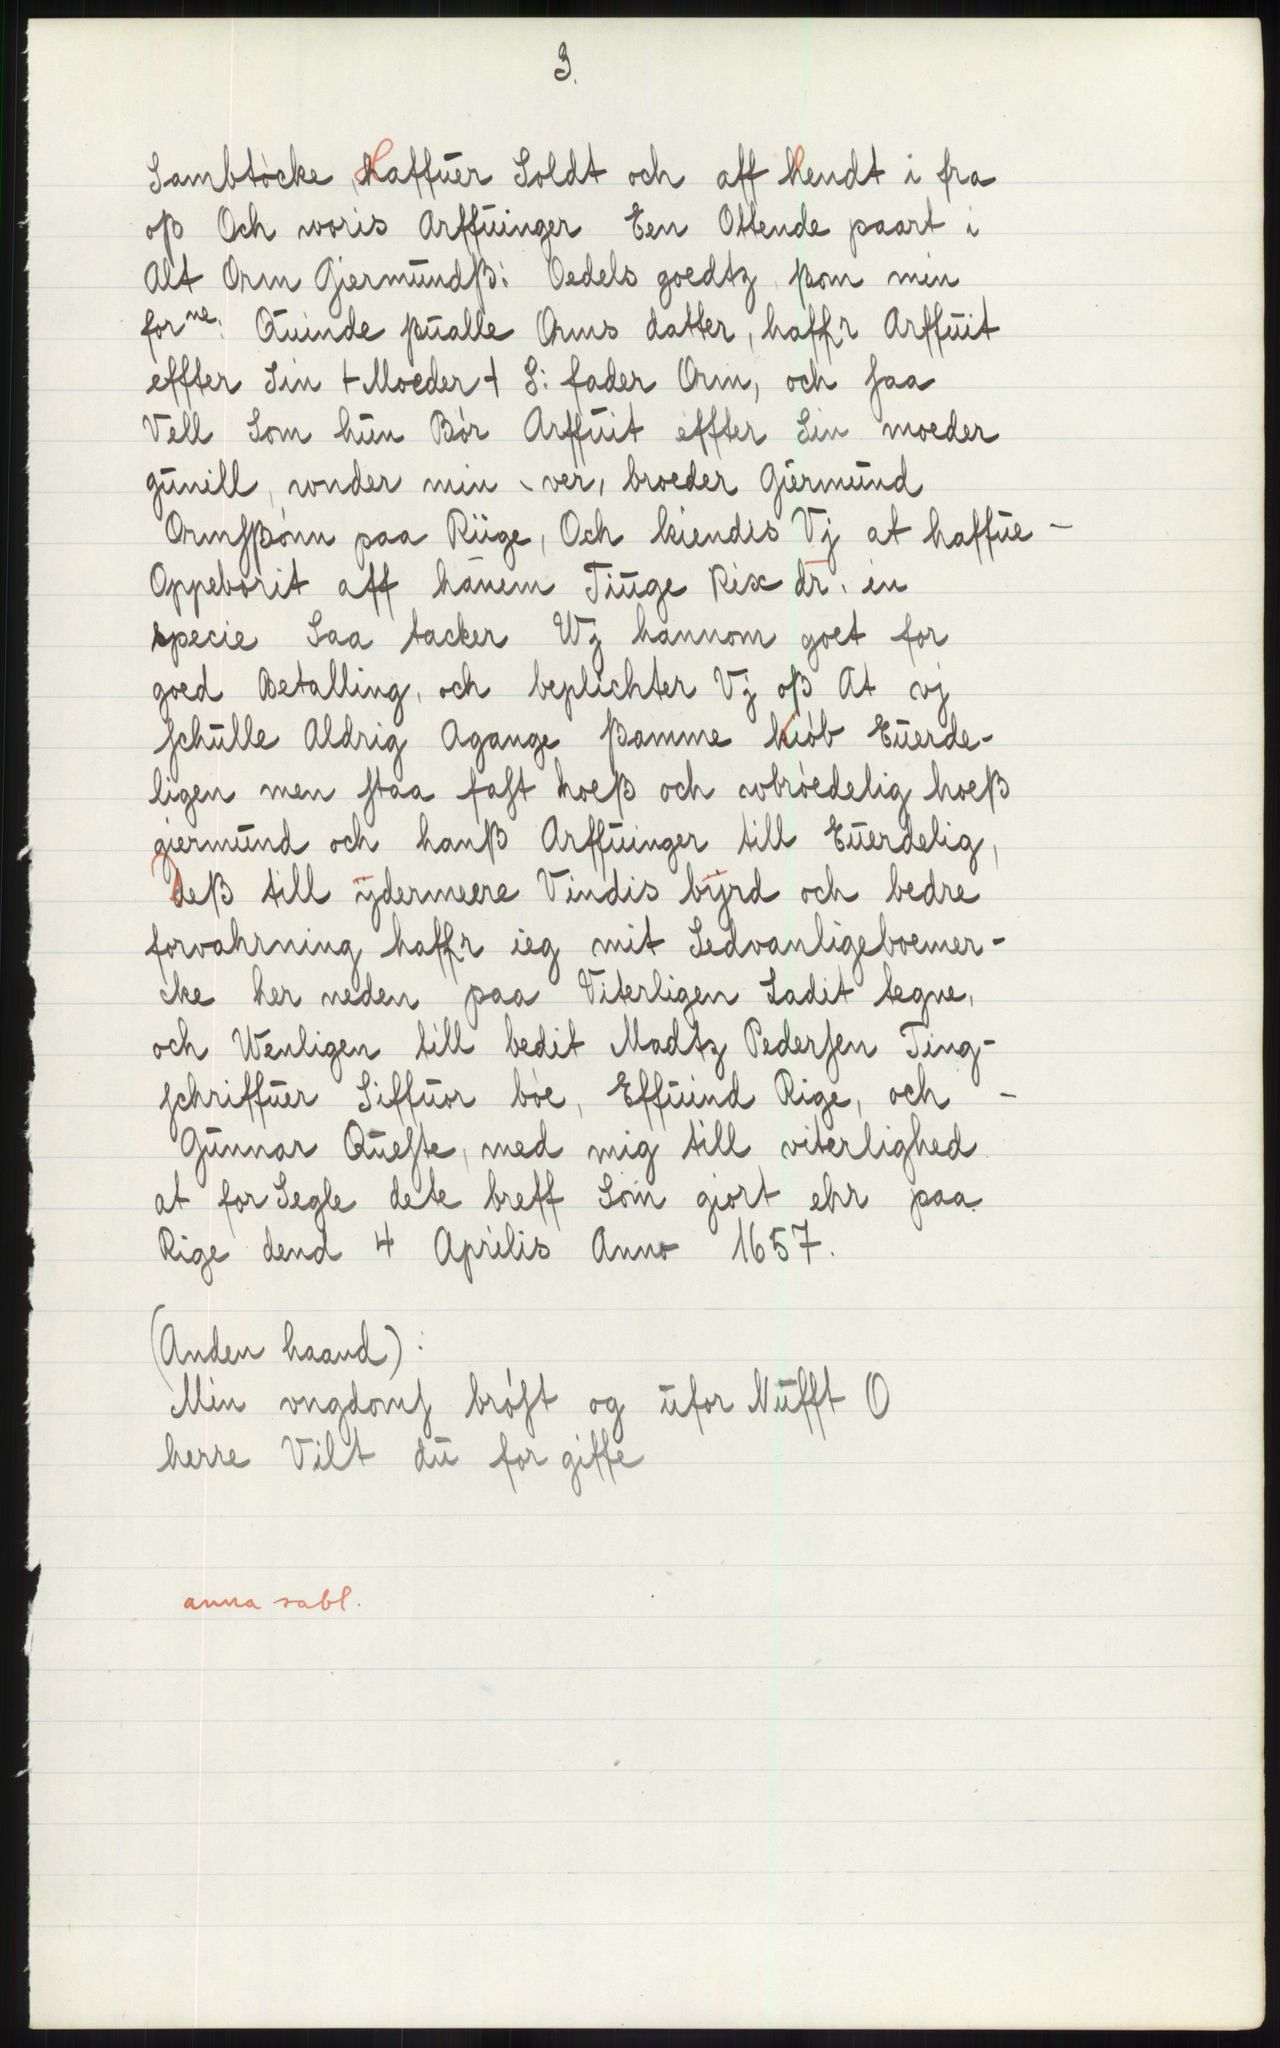 3.
Sambtøcke, haffuer Soldt och aff hendt i fra
oß Och woris Arffuinger Een Ottende paart i
Alt Orm Giermundß: Oedels goedtz, ßom min
for ne: Quinde ßualle Orms datter, haffr Arffuit
effter Sin + Moeder + S: fader Orm, och saa
Vell Som hun Bør Arffuit effter Sin moeder
gunill, wnder min ver, broeder Giermund
Ormsßønn paa Riige, Och kiendis Vj at haffue -
Oppebørit aff hanem Tiuge Rix dr. in
specie Saa tacker Wj hannom goet for
goed Betalling, och beplichter Vj oß At vj
schulle Aldrig Agange ßamme kiøb Euerde-
ligen men staa fast hoeß och wbrøedelig hoeß
giermund och hanß Arffuinger till Euerdelig,
deß till ydermeere Vindis byrd och bedre
forvahrning haffr ieg mit Sedvanligeboemer-
cke her neden paa Viterligen Ladit tegne,
och Wenligen till bedit Madtz Pedersen Ting-
schriffuer Siffuor bøe, Effuind Rige, och -
Gunnar Queste, med mig till viterlighed
at for Segle dete breff Som giort ehr paa
Rige dend 4 Aprilis Anno 1657.
(Anden haand):
Min vngdoms brøst og ufor Nufft O
herre Vilt du for giffe
anna rabl.